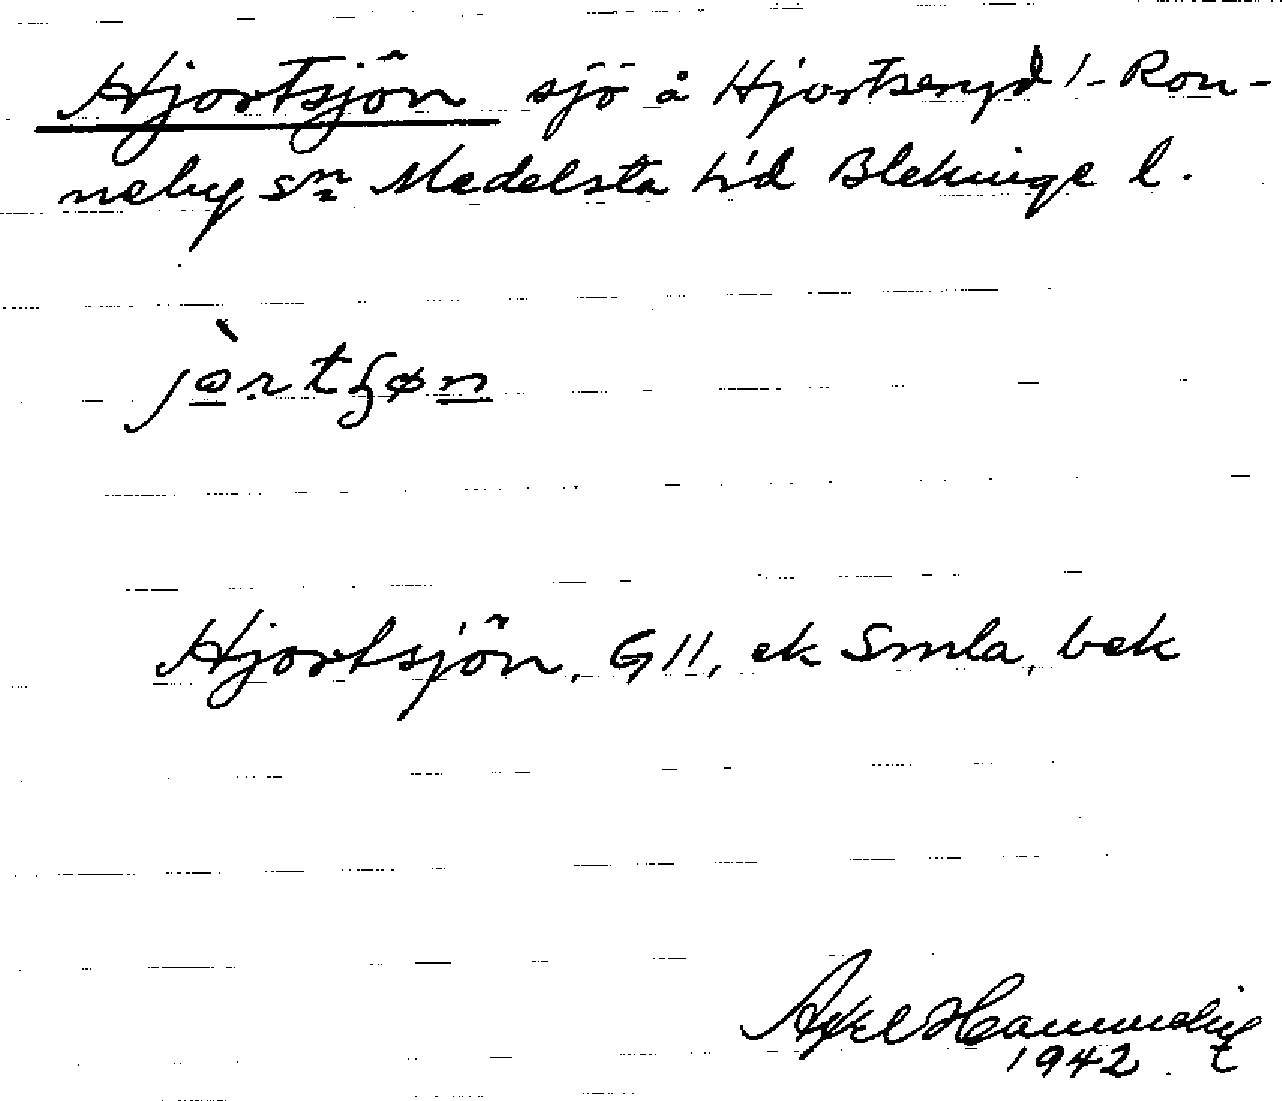 Hjortsjön sjö å Hjortseryd 1- Ron-
neby sn Medelsta hd Blekinge l.
jòrtʃøn
Hjortsjön, G11, ek Smla, bek
Axel
1942